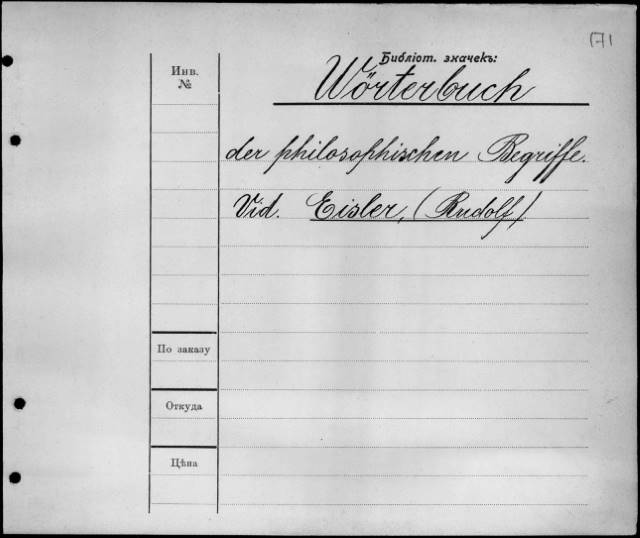 171
Библіот. значекъ:
Инв.
№
Wörterbuch
der philosophischen Begriffe.
Vid. Eisler, (Rudolf)
По заказу
Откуда
Цѣна